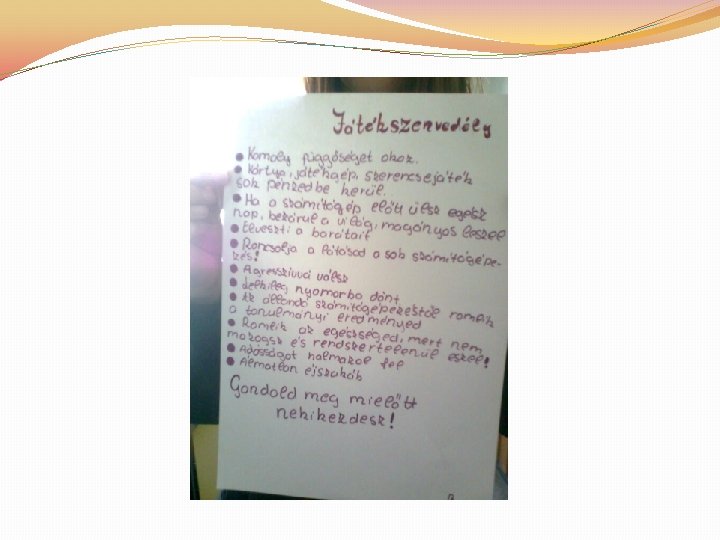 Játékszenvedély
● Komoly függőséget okoz.
● Kártya, játékgép, szerencsejáték
sok pénzedbe kerül.
● Ha a számítógép előtt ülsz egész
nap, bezárul a világ, magányos leszel
● Elveszti a barátait
● Roncsolja a látásod a sok számítógépe-
zés!
● Agresszívvá válsz
● Lelkileg nyomorba dönt
● Az állandó számítógépezéstől romlik
a tanulmányi eredményed
● Romlik az egészséged, mert nem
mozogsz és rendszertelenül eszel!
● Adósságot halmozol fel
● Álmatlan éjszakák
Gondold meg mielőtt
nekikezdesz!